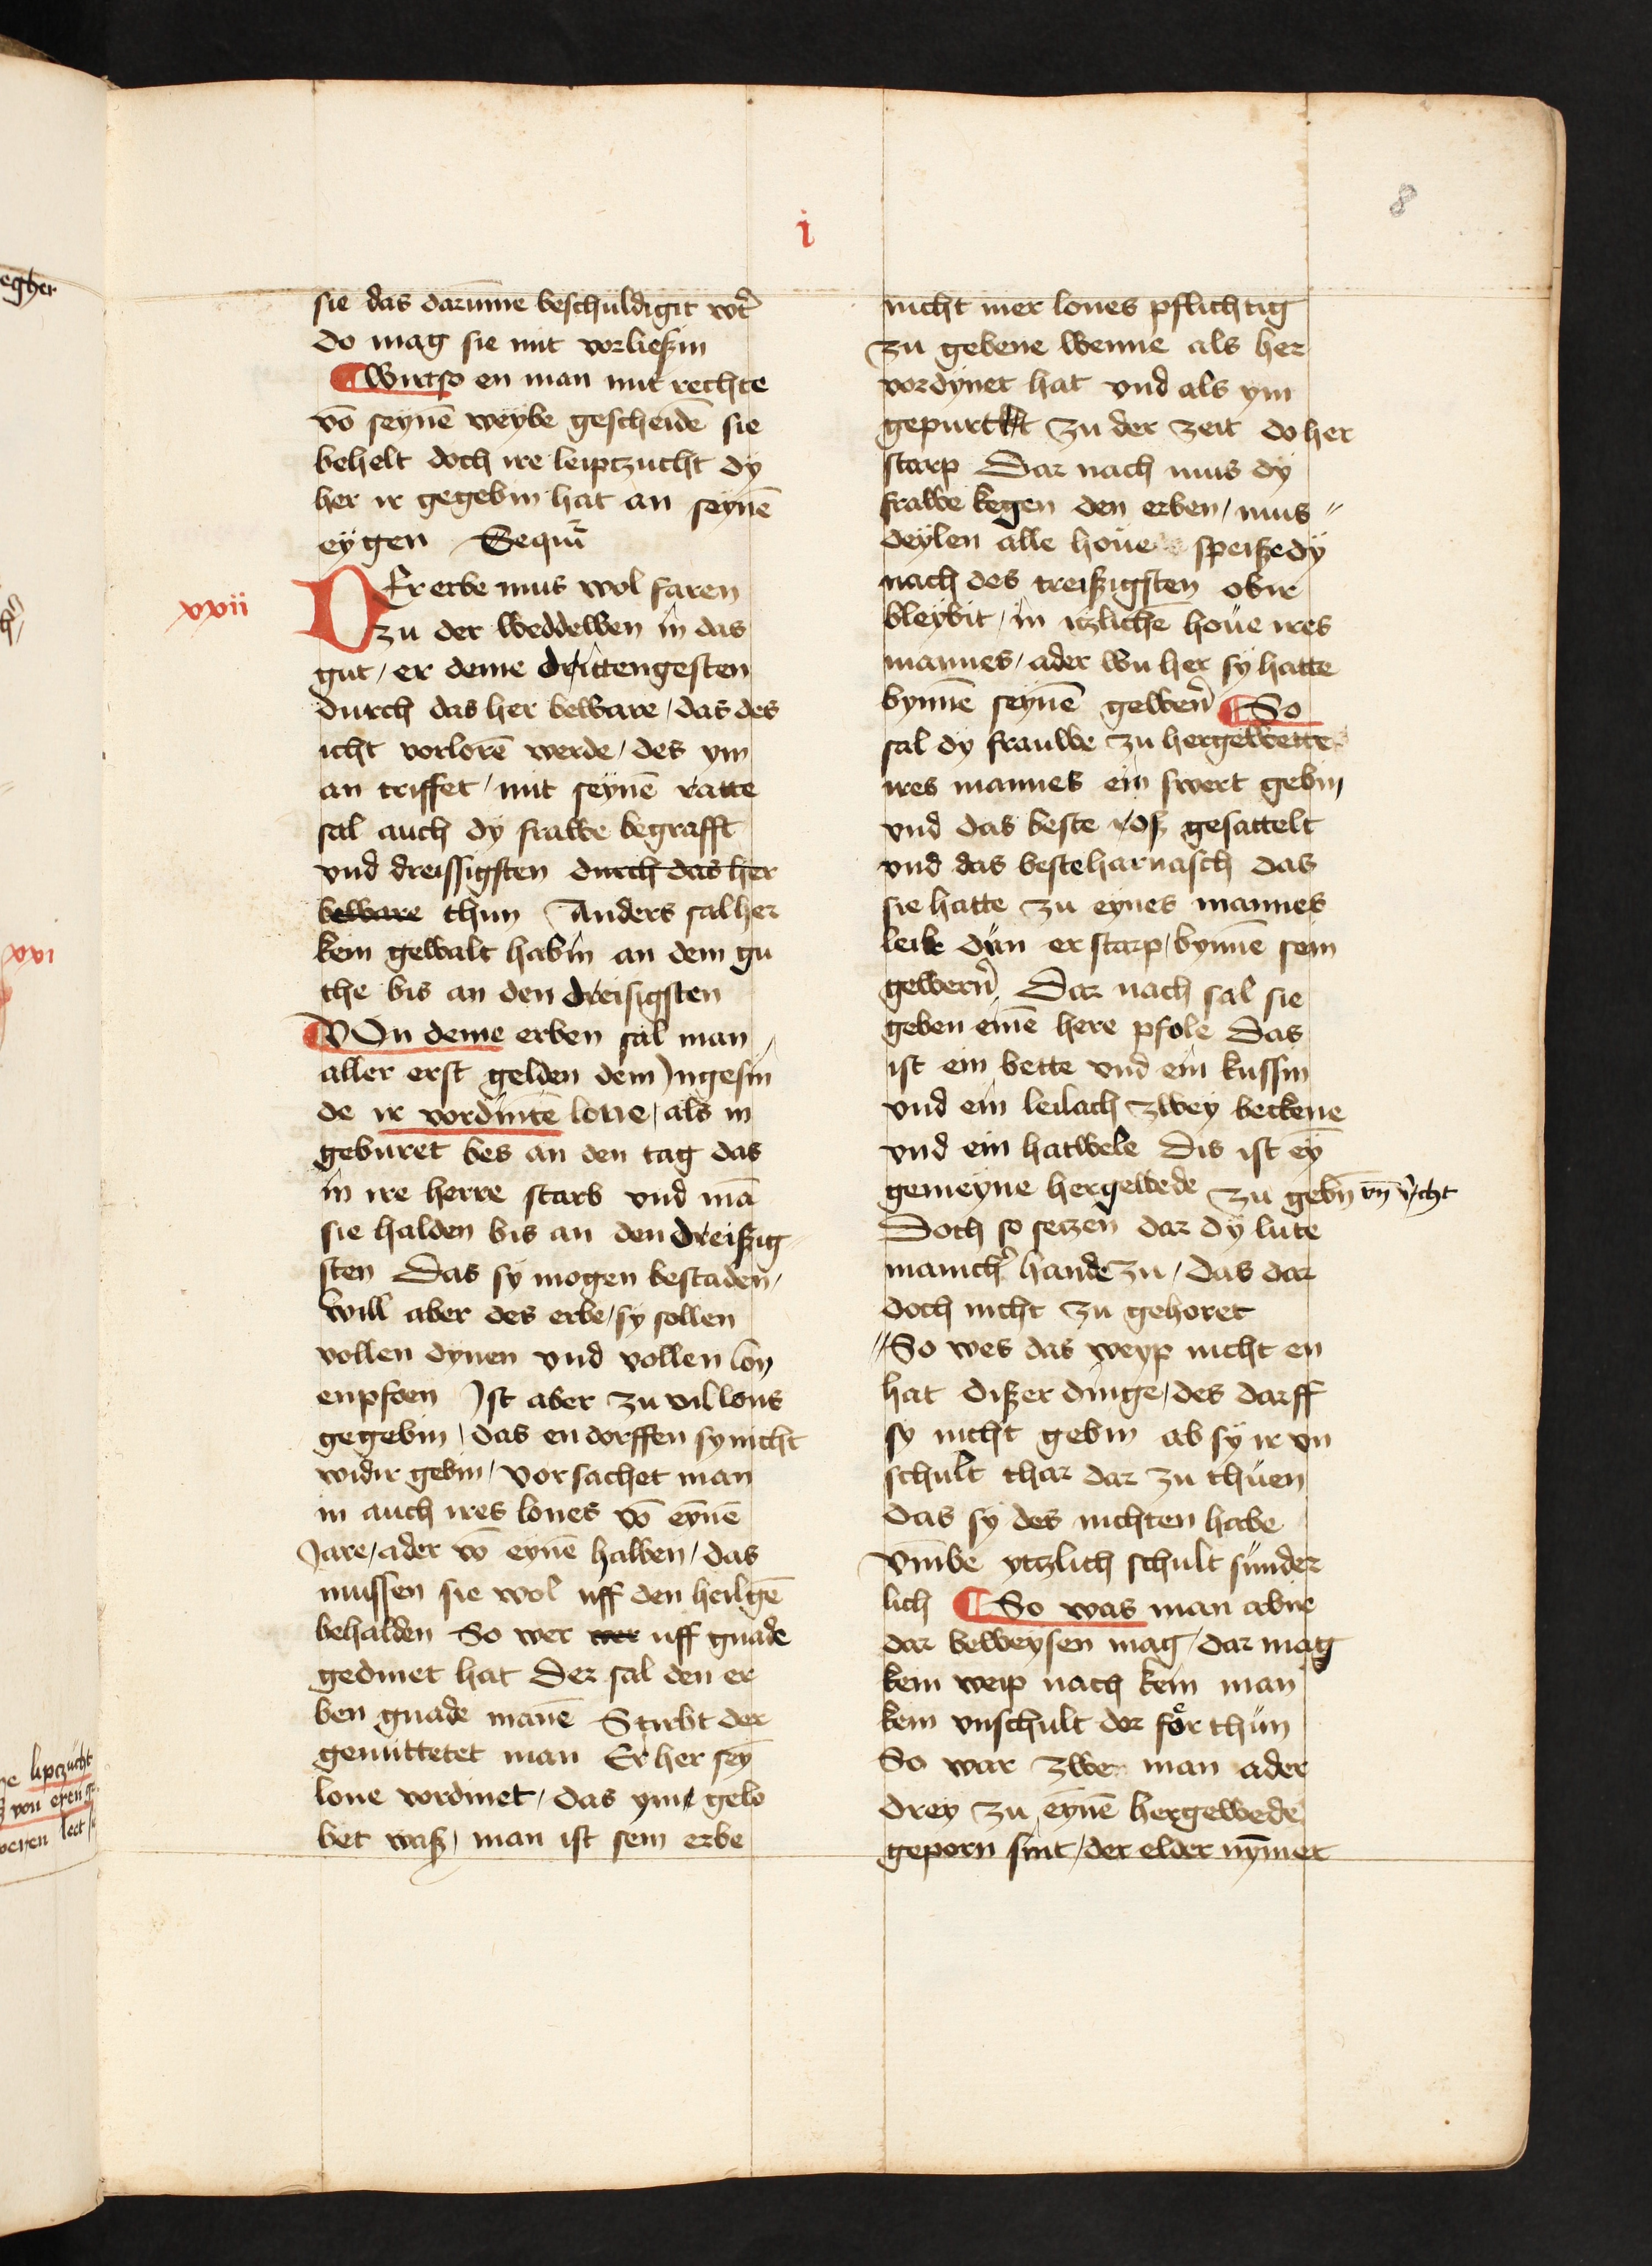 8
i
sie das darūme beschuldigit wt̉
do mag sie mit vorließin
¶ Wirt so en man mit rechte
vō seynē weybe gescheidē sie
behelt doch ire leiptzucht dy
her ir gegebin hat an seynē
eygen Sequit̉
xxii
DEr erbe mus wol faren
zu der weddewen in das
gut / er deme drittengesten
durch das her beware / das des
icht vorlorē werde / des ym
an triffet / mit seynē ratte
sal auch dy frawe begrafft
vnd dreissigsten durch das her
beware thun Anders sal her
kein gewalt habin an dem gu
the bis an den dreisigsten
VOn deme erben sal man
aller erst gelden dem Ingesin
de ir vordintē lone / als in
geburet bes an den tag das
in ire herre starb vnd mā
sie halden bis an den dreißig
sten Das sy mogen bestaden /
will aber des erbe / sy sollen
vollen dynen vnd vollen lon
enpfoen Ist aber zu vil lons
gegebin / das en dorffen sy nicht
widir gebin / vorsachet man
in auch ires lones vō eynē
Jare / ader vō eynē halben / das
mussen sie wol uff den heilgē
behalden So wer wer uff gnade
gedinet hat Der sal den er
ben gnade manē Stirbt der
gemittetet man Er her sey
lone vordinet / das yme gelo
bet waß / man ist sein erbe
nicht mer lones pflichtig
zu gebene wenne als her
vordynet hat vnd als ym
gepurt zu der zeit do her
starp Dar nach mus dy
frawe kegen den erben / mus
deylen alle houe speiße dy
nach des treißigsten obir
bleybit / in itzlichē houe ires
mannes / ader wu her sy hatte
bynnē seynē gewer̄ ¶ So
sal dy frauwe zu hergewette
ires mannes ein swert gebin
vnd das beste roß gesattelt
vnd das beste harnasch das
sie hatte zu eynes mannes
leibe dun er starp / bynnē sein
gewern̉ Dar nach sal sie
geben einē here pfole Das
ist ein bette vnd ein kussin
vnd ein leilach zwey beckene
vnd ein hatwele Dis ist ey
gemeyne hergewede zu gebn̄ vn̄ r̉cht
Doch so setzen dar dy lute
manich̉ hande zu / das dar
doch nicht zu gehoret
So wes das weyp nicht en
hat dißer dinge / des darff
sy nicht gebin ab sy ir vn
schult thar dar zu thuen
das sy des nichten habe
Vmbe ytzlich schult sunder
lich ¶ So was man abir
dar beweysen mag / dar mag
kein weip nach kein man
kein vnschult dor for thun
So war zwe man ader
drey zu eynē hergewede
geporn sint / der elder nȳmet